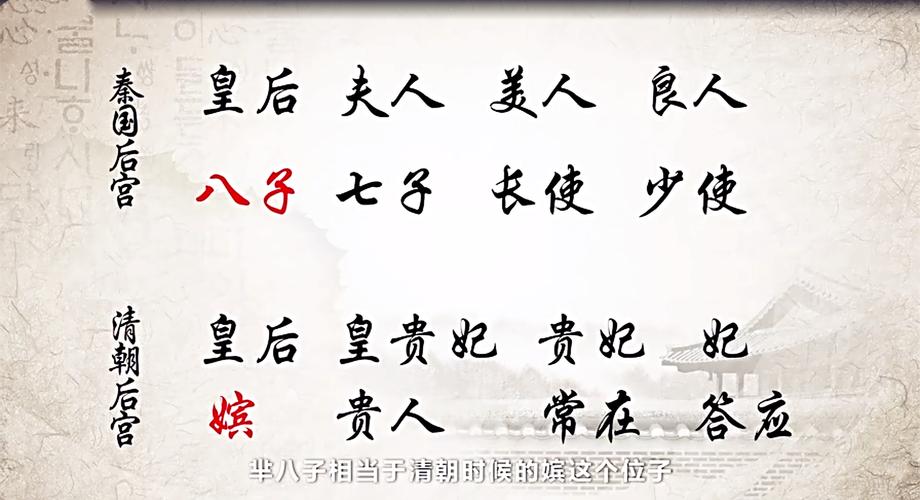 秦国后宫
皇后 夫人 美人 良人
八子 七子 长使 少使
清朝后宫
皇后 皇贵妃 贵妃 妃
嫔 贵人 常在 答应
芈八子相当于清朝时候的嫔这个位子